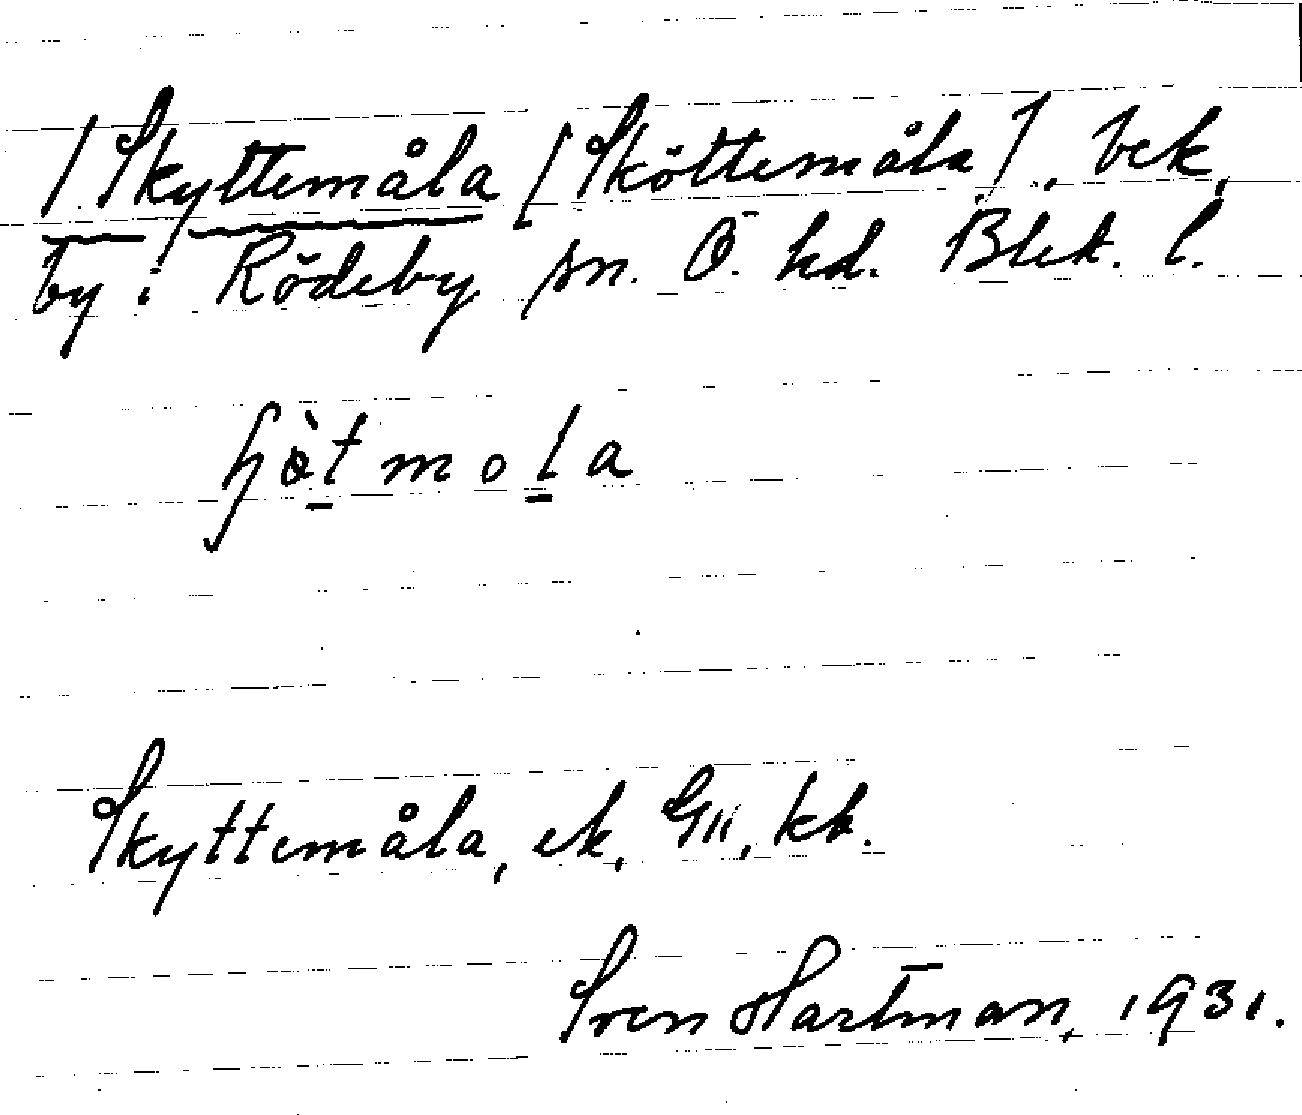 /Skyttemåla [Sköttemåla], bek,
by i Rödeby sn. Ö. hd. Blek. l.
Skyttemåla, ek, GII, kb.
Sven Hartman, 1931.